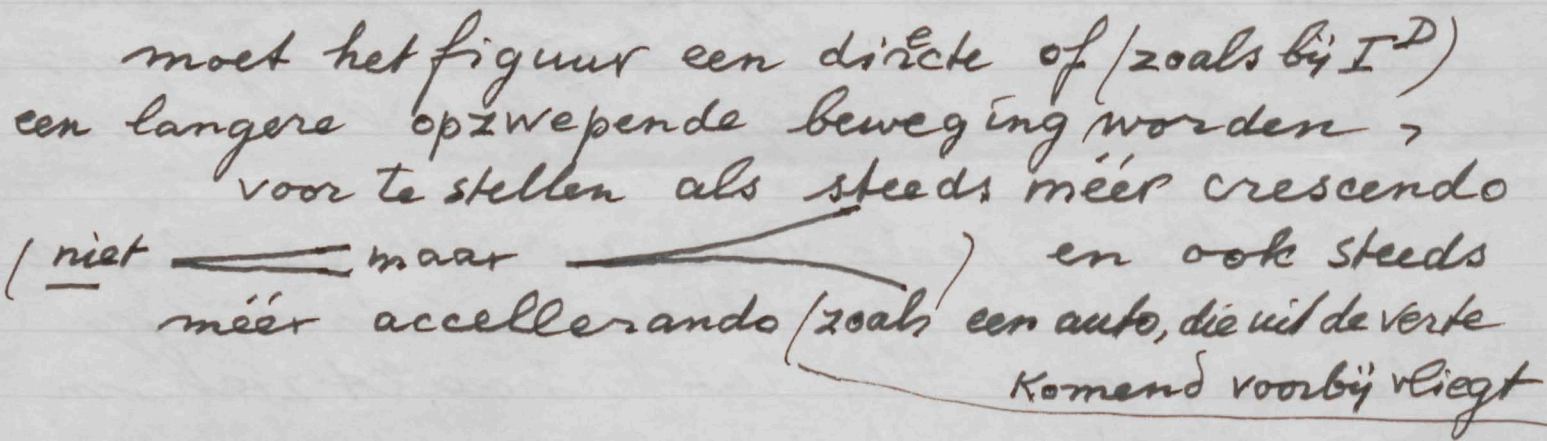 moet het figuur een directe of (zoals bij I^D)
een langere opzwepende beweging worden,
voor te stellen als steeds méér crescendo
(niet < maar <) en ook steeds
méér accellerando (zoals een auto, die uit de verte
komend voorbij vliegt